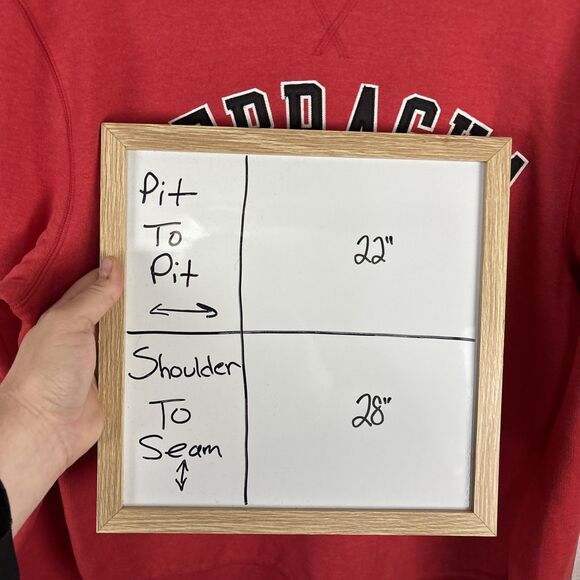 Pit
To
Pit
22"
Shoulder
To
Seam
28"